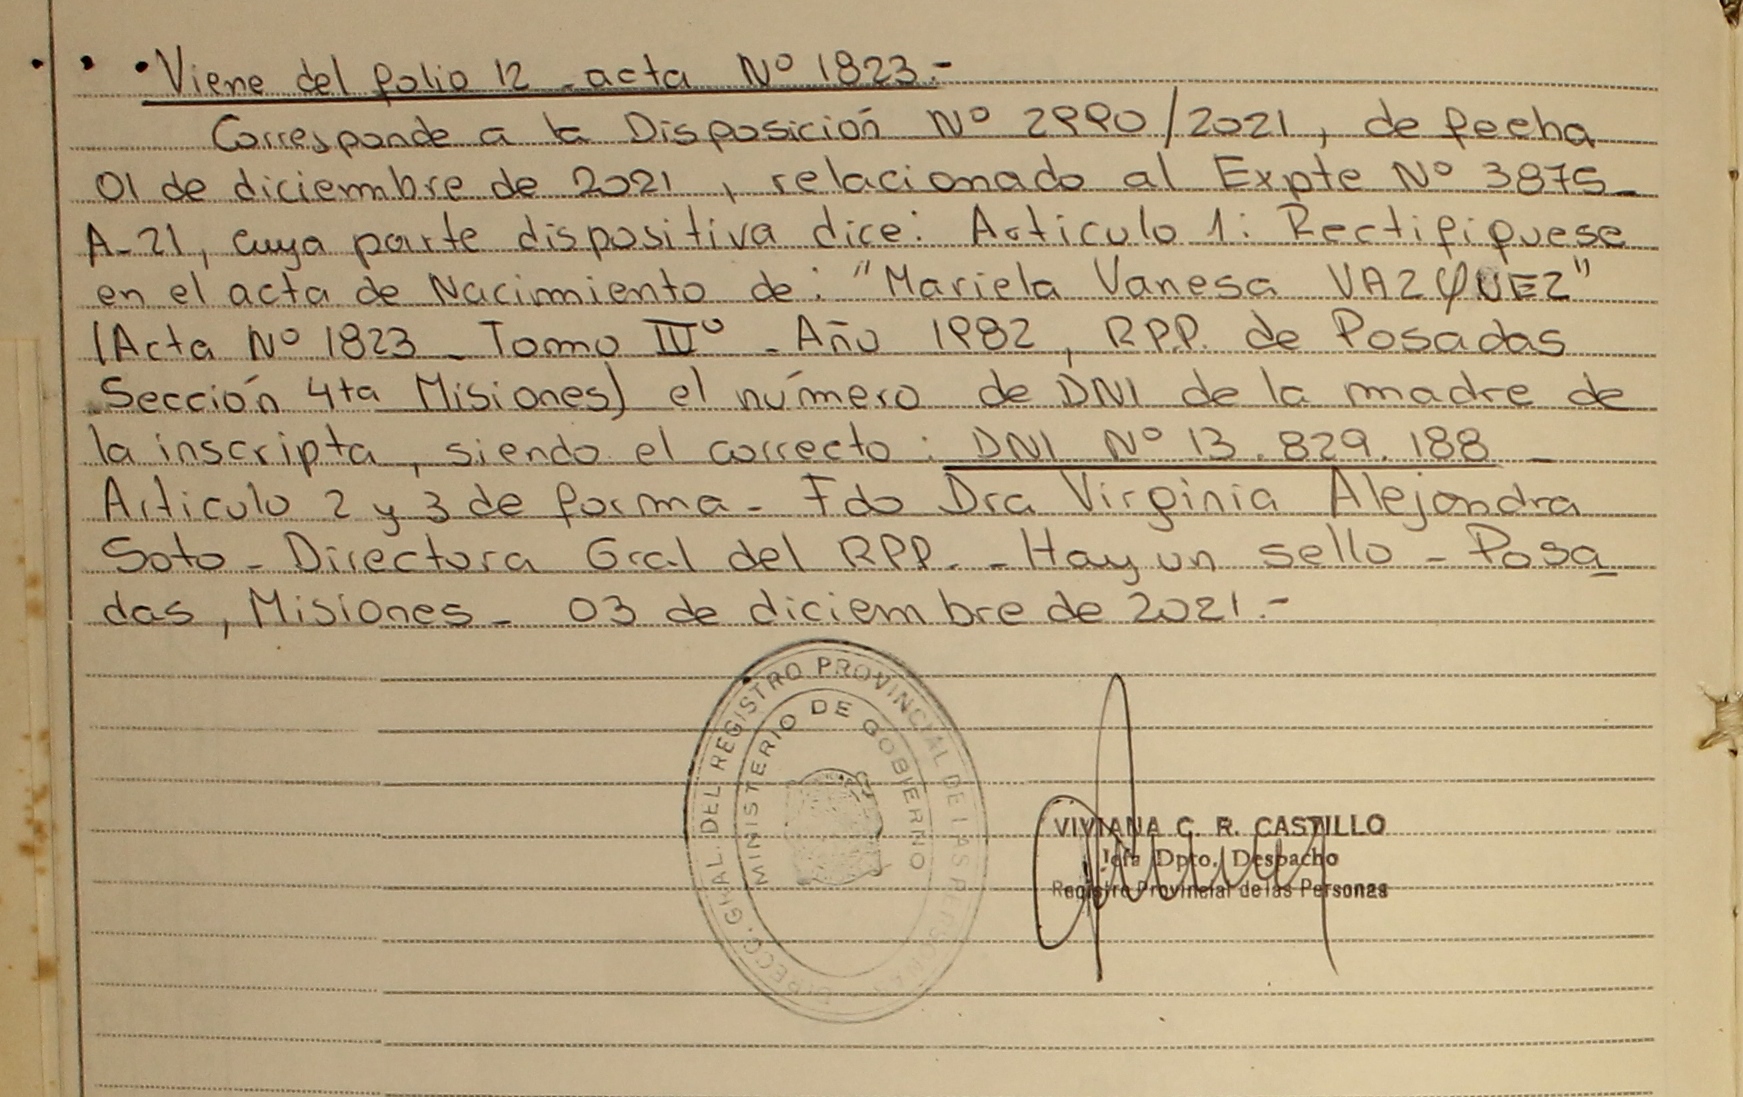 Viene del folio 12 - acta Nº 1823.-
Corresponde a la Disposición Nº 2990/2021, de fecha
01 de diciembre de 2021, relacionado al Expte Nº 3875-
A-21, cuya parte dispositiva dice: Articulo 1: Rectifiquese
en el acta de Nacimiento de: "Mariela Vanesa VAZQUEZ"
(Acta Nº 1823 - Tomo IVº - Año 1982, RPP. de Posadas
Sección 4ta Misiones) el número de DNI de la madre de
la inscripta, siendo el correcto: DNI Nº 13.829.188 -
Articulo 2 y 3 de forma - Fdo Dra Virginia Alejandra
Soto - Directora Gral del RPP. - Hay un sello - Posa
das, Misiones - 03 de diciembre de 2021.-
DIRECC. GRAL. DEL REGISTRO PROVINCIAL DE LAS PERSONAS
MINISTERIO DE GOBIERNO
VIVIANA C. R. CASTILLO
Jefa Dpto. Despacho
Registro Provincial de las Personas